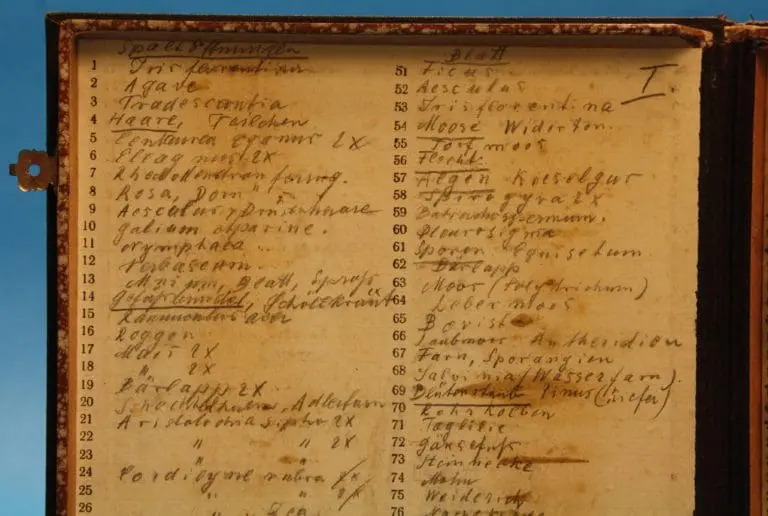 Spaltöffnungen
1 Iris florentina
2 Agave
3 Tradescantia
4 Haare, Teilchen
5 Centaurea cyanus 2X
6 Eleagnus 2X
7 Rhododendron
8 Rosa, Dorn
9 Aesculus, Drüsenhaare
10 galium aparine.
11 Nymphaea
12 Verbascum.
13 Blatt, Spross
14 Gefässbündel, Schöllkraut
15 Ranunculus acer
16 Roggen
17 Mais 2X
18 " 2X
19 Bärlapp 2X
20 Schachtelhalm, Adlerfarn
21 Aristolochia sipho 2X
22 " " 2X
23 " "
24 Cordyline rubra 2X
25 " " 2X
26
Blatt
I.
51 Ficus
52 Aesculus
53 Iris florentina
54 Moose Widerton.
55 Torfmoos
56 Flecht.
57 Algen Kieselgur
58 Spirogyra 2X
59 Batrachospermum.
60 Pleurosigma
61 Sporen Equisetum
62 Bärlapp
63 Moos (Polytrichum)
64 Lebermoos
65 Bovist
66 Laubmoos Antheridien
67 Farn, Sporangien
68 Salvinia (Wasserfarn).
69 Blütenstaub Pinus (Kiefer)
70 Rohrkolben
71 Taglilie
72 Gänsefuss
73 Steinnelke
74 Mohn
75 Weiderich
76